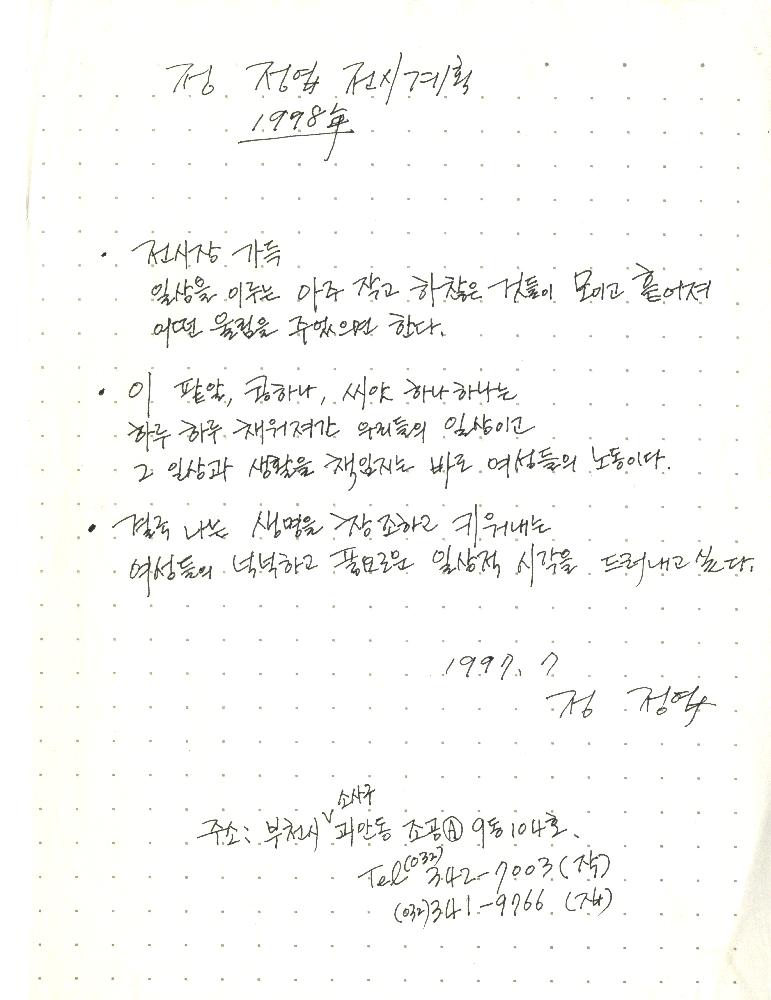 정 정엽 전시계획
1998年
• 전시장 가득
일상을 이루는 아주 작고 하찮은 것들이 모이고 흩어져
어떤 울림을 주었으면 한다.
• 이 팥알, 콩하나, 씨앗 하나하나는
하루 하루 채워져간 우리들의 일상이고
그 일상과 생활을 책임지는 바로 여성들의 노동이다.
• 결국 나는 생명을 창조하고 키워내는
여성들의 넉넉하고 풍요로운 일상적 시각을 드러내고 싶다.
1997. 7
정 정엽
소사구
주소: 부천시 ∨ 괴안동 조공Ⓐ 9동 104호.
Tel (032) 342-7003 (작)
(032) 341-9766 (자)